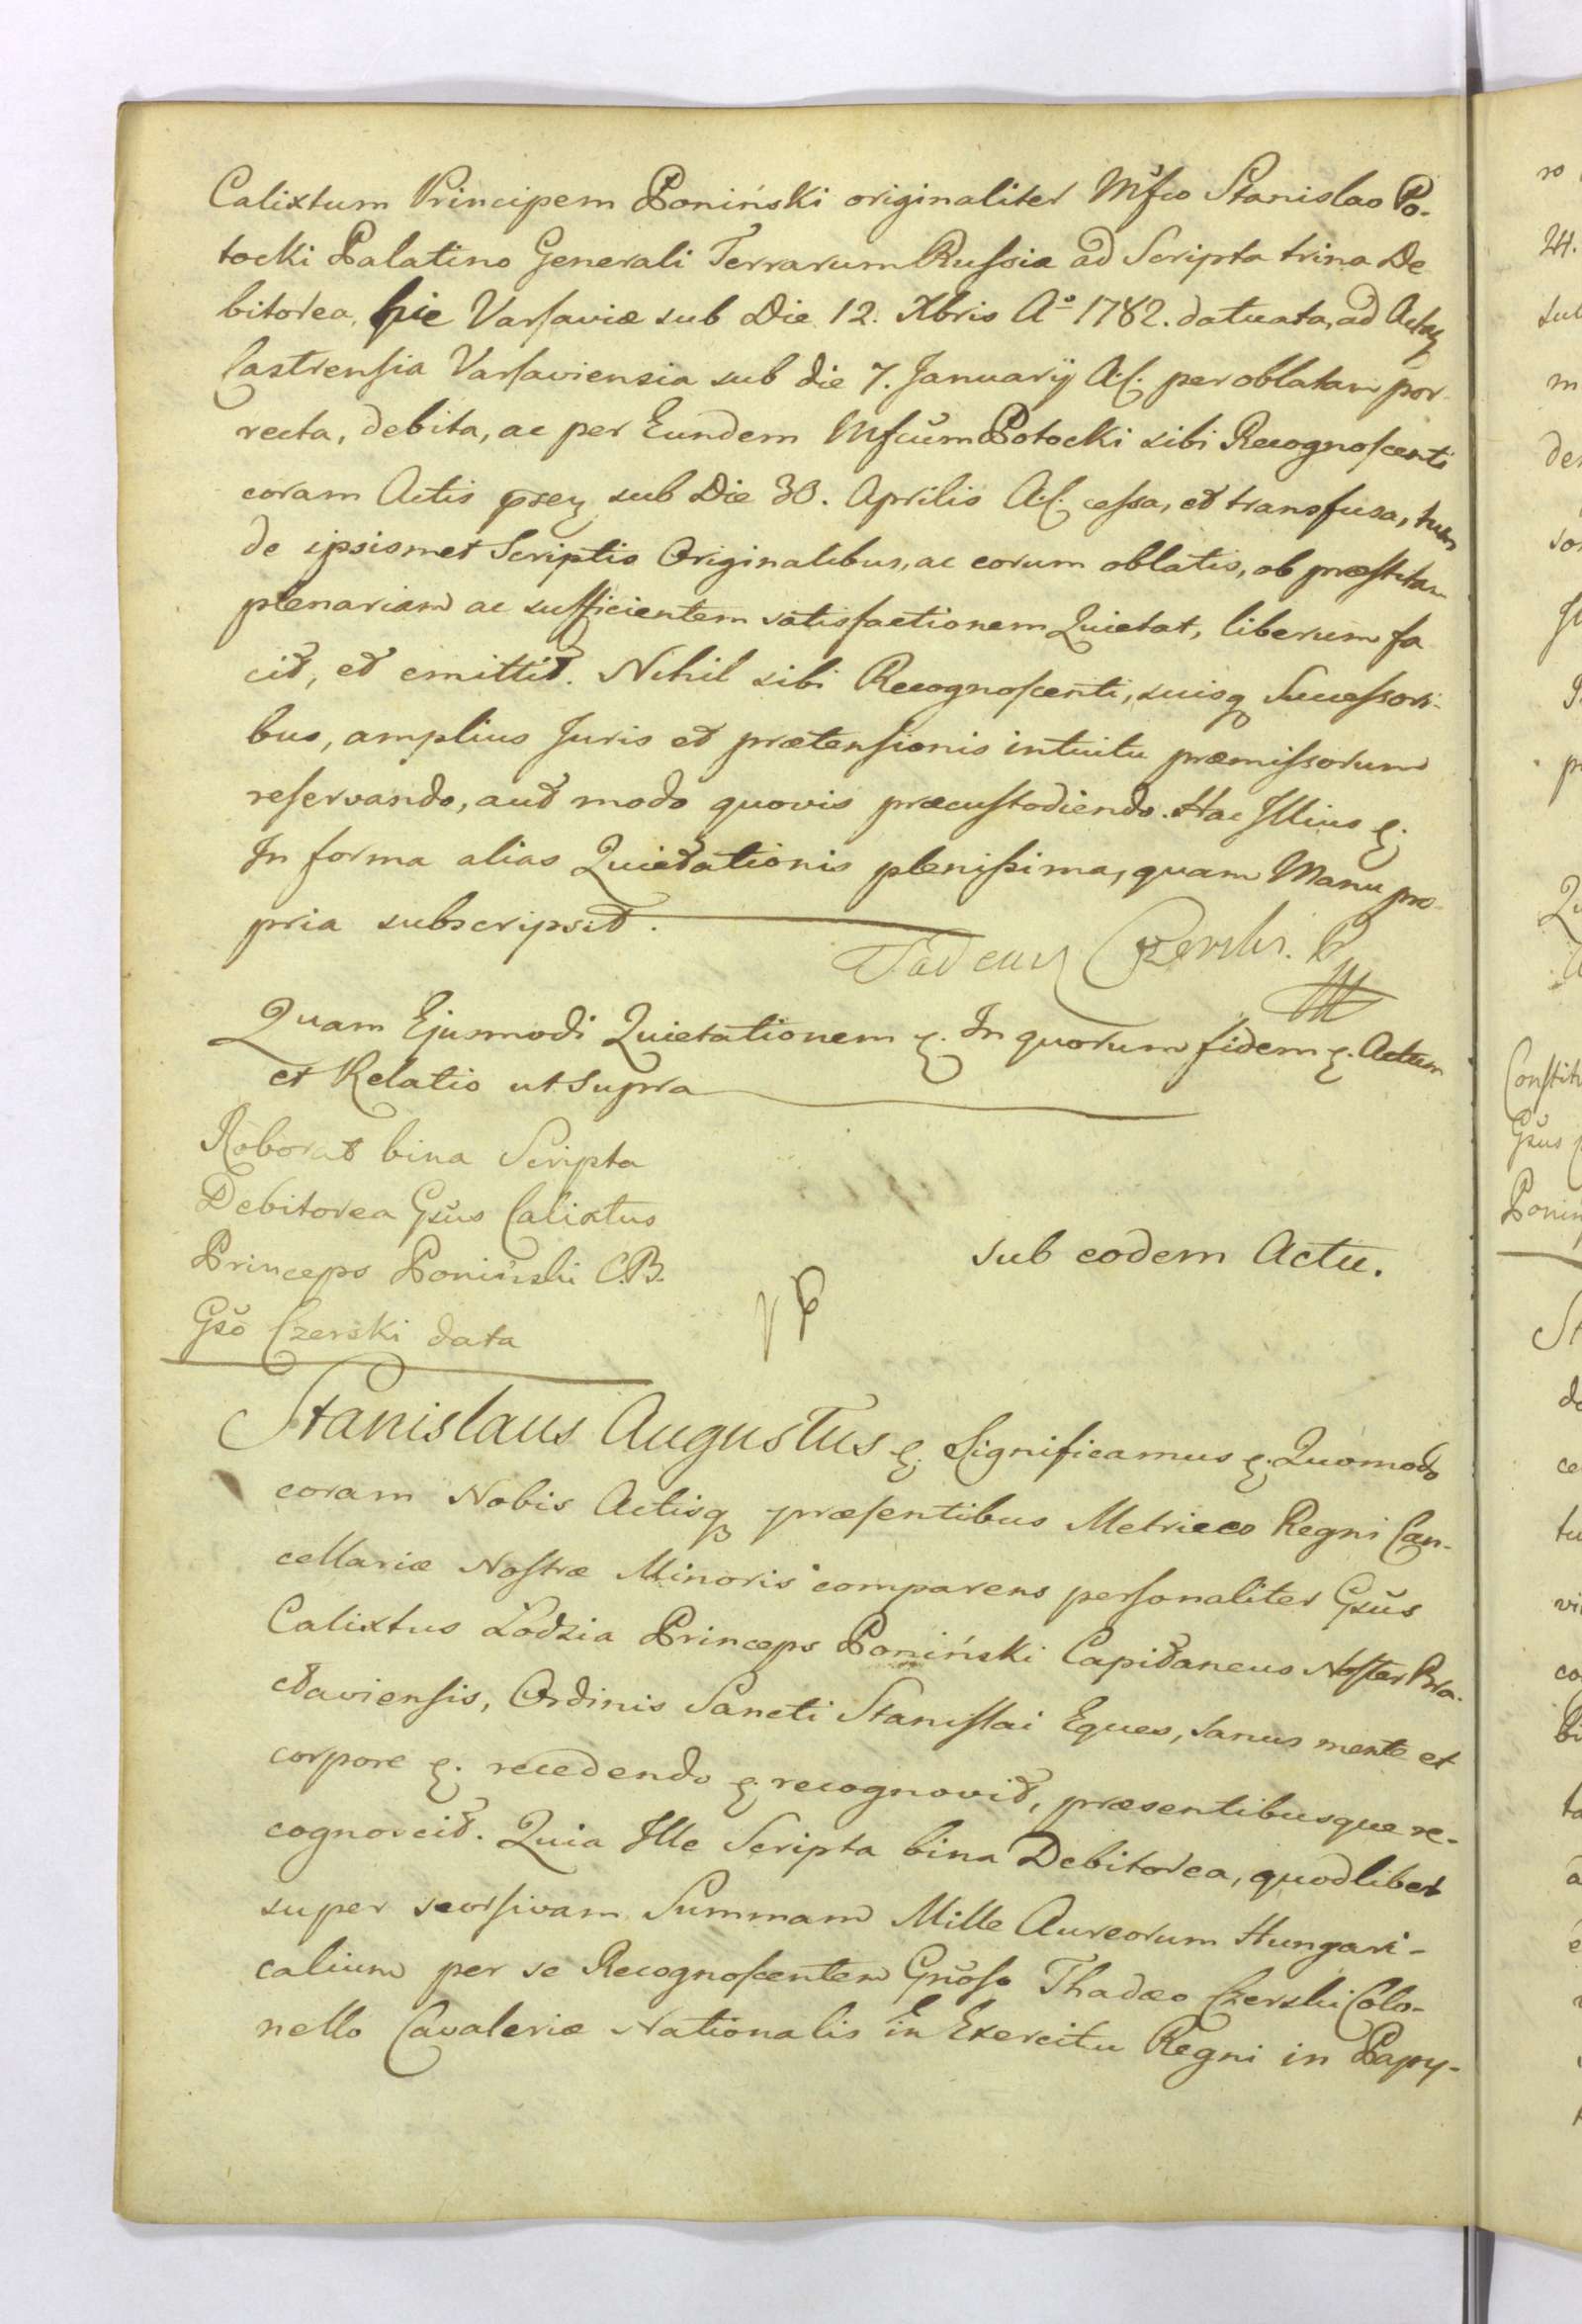 Calixtum Principem Poniński originaliter Mfco Stanislao Po-
tocki Palatino Generali Terrarum Russiæ ad Scripta trina De
bitorea, hic Varsaviæ sub Die 12. Xbris Ao 1782. datuata, ad Acta
Castrensia Varsaviensia sub die 7. Januarij A. C. per oblatam por-
recta, debita, ac per Eundem Mfcum Potocki sibi Recognoscenti
coram Actis sub Die 30. Aprilis A. C. cessa, et transfusa, tum
de ipsismet Scriptis Originalibus, ac eorum oblatis, ob præstitam
plenariam ac sufficientem satisfactionem Quietat, liberum fa
cit, et emittit. Nihil sibi Recognoscenti, suisq Successori-
bus, amplius Juris et prætensionis intuitu præmissorum
reservando, aut modo quovis præcustodiendo. Hac Illius &.
In forma alias Quietationis plenissima, quam Manu pro-
pria subscripsit.
Tadeusz Czerski. P
Quam Ejusmodi Quietationem &. In quorum fidem &. Actum
et Relatio ut supra
Roborat bina Scripta
Debitorea Gsus Calixtus
Princeps Poniński C.B.
Gso Czerski data
sub eodem Actu.
Stanislaus Augustus &. Significamus &. Quomodo
coram Nobis Actisq præsentibus Metrices Regni Can-
cellariæ Nostræ Minoris comparens personaliter Gsus
Calixtus Łodzia Princeps Poniński Capitaneus Noster Bra-
ctaviensis, Ordinis Sancti Stanislai Eques, sanus mente et
corpore &. recedendo &. recognovit, præsentibusque re-
cognoscit. Quia Ille Scripta bina Debitorea, quodlibet
super seorsivam Summam Mille Aureorum Hungari-
calium per se Recognoscentem Gnoso Thadæo Czerski Colo-
nello Cavaleriæ Nationalis in Exercitu Regni in Papy-